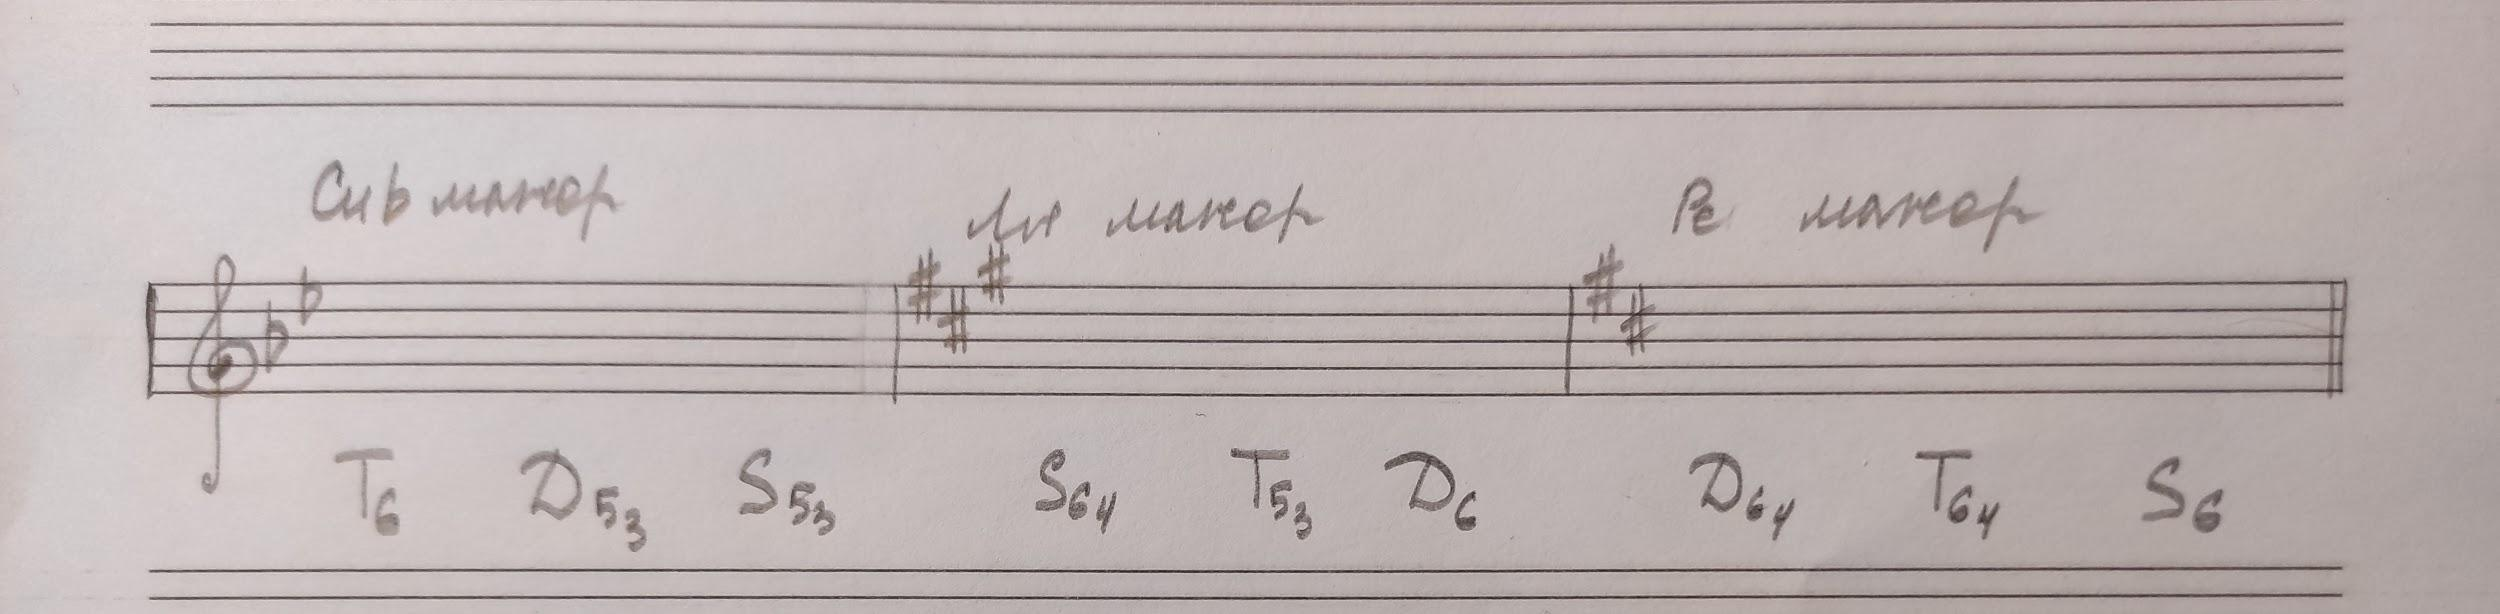 Сиb мажор Ля мажор Ре мажор
T6 D53 S53 S64 T53 D6 D64 T64 S6